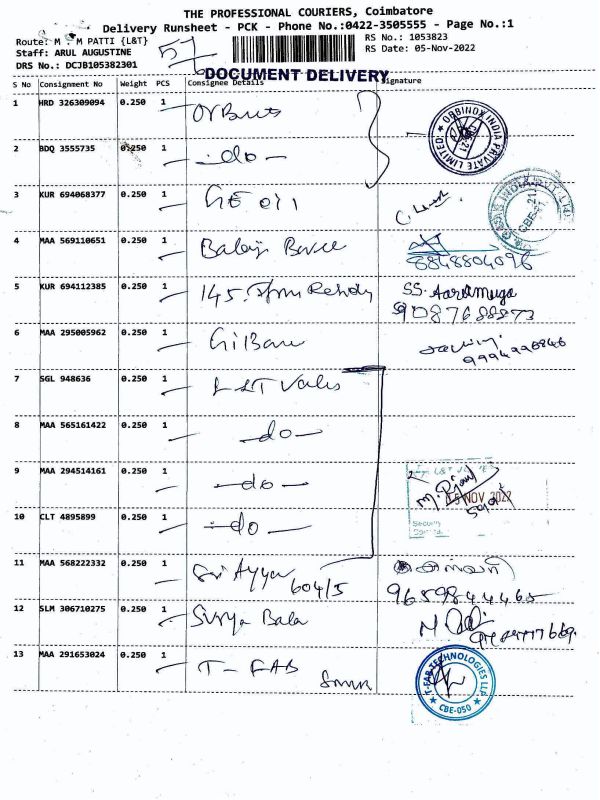 THE PROFESSIONAL COURIERS, Coimbatore
Delivery Runsheet - PCK - Phone No.:0422-3505555 - Page No.:1
Route: M . M PATTI {L&T}
RS No.: 1053823
Staff: ARUL AUGUSTINE
RS Date: 05-Nov-2022
DRS No.: DCJB105382301
57
DOCUMENT DELIVERY
S No Consignment No Weight PCS Consignee Details Signature
1 HRD 326309094 0.250 1
ORBINOX INDIA PRIVATE LIMITED
2 BDQ 3555735 0.250 1 -do-
3 KUR 694068377 0.250 1 GE Oil
4 MAA 569110651 0.250 1 Balaji 8848804096
5 KUR 694112385 0.250 1 145. SS. Aarumuga
9087688873
6 MAA 295005962 0.250 1
7 SGL 948636 0.250 1 L&T Valves
8 MAA 565161422 0.250 1 -do-
9 MAA 294514161 0.250 1 -do-
15 NOV 2022
10 CLT 4895899 0.250 1 -do-
Security
11 MAA 568222332 0.250 1 Sri Ayyan 604/5
9659844465
12 SLM 306710275 0.250 1 Surya Bala
13 MAA 291653024 0.250 1 T-FAB
T-FAB TECHNOLOGIES LLP
CBE-050